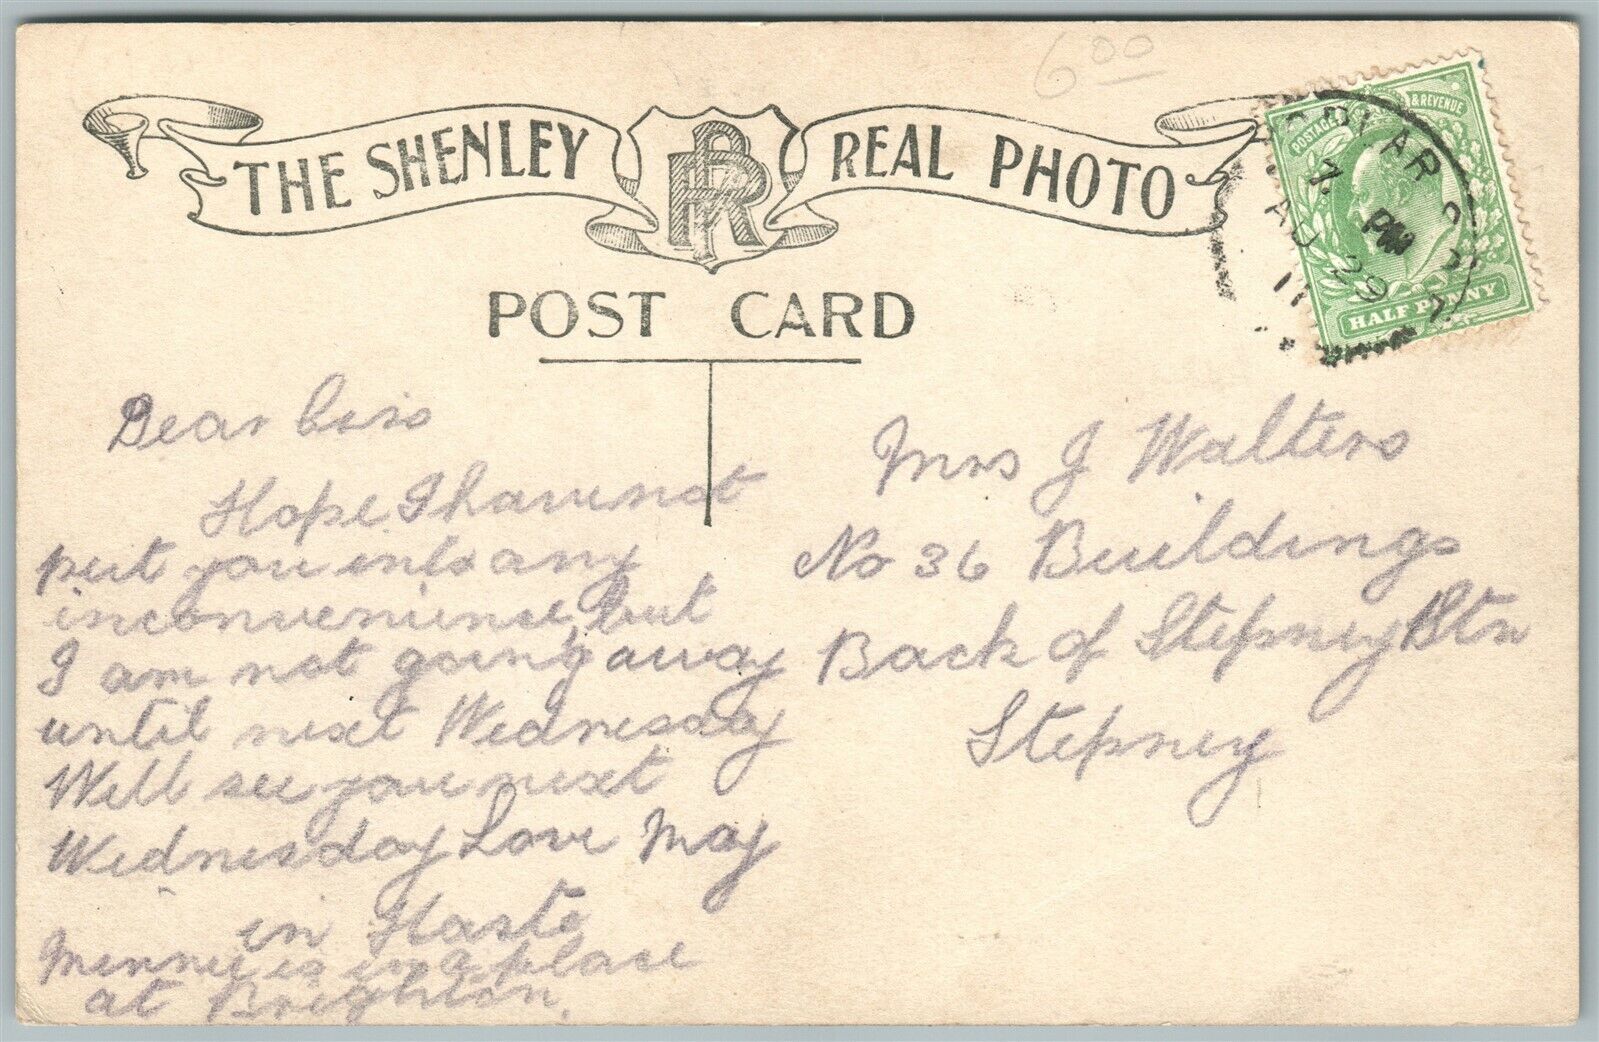 6.00
THE SHENLEY RP REAL PHOTO
POSTAGE & REVENUE
POPLAR
7. PM
AU 29
11
HALF PENNY
POST CARD
Dear Ciss
Hope I have not
put you into any
inconvenience, but
I am not going away
until next Wednesday
Will see you next
Wednesday Love May
in Haste
Minnie is in a place
at Brighton.
Mrs J Walters
No 36 Buildings
Back of Stepney Stn
Stepney